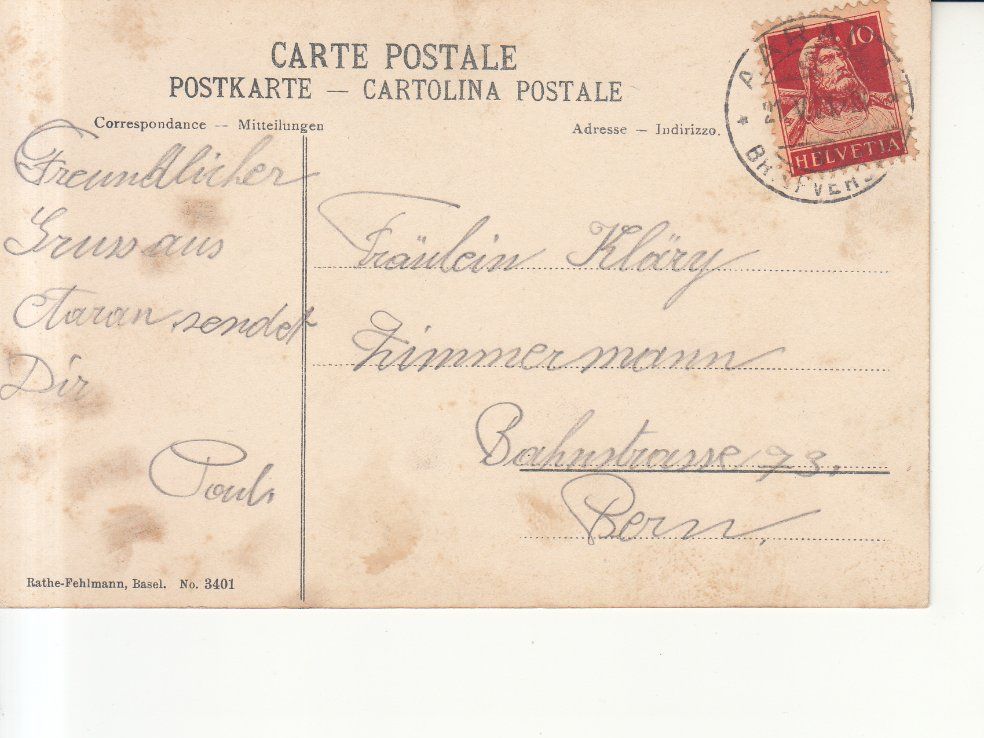 CARTE POSTALE
POSTKARTE — CARTOLINA POSTALE
Correspondance — Mitteilungen
Adresse — Indirizzo.
10
HELVETIA
Freundlicher
Gruss aus
sendet
Dir
Paul.
Fräulein Kläry
Zimmermann
Bahnstrasse 73.
Bern.
Rathe-Fehlmann, Basel. No. 3401